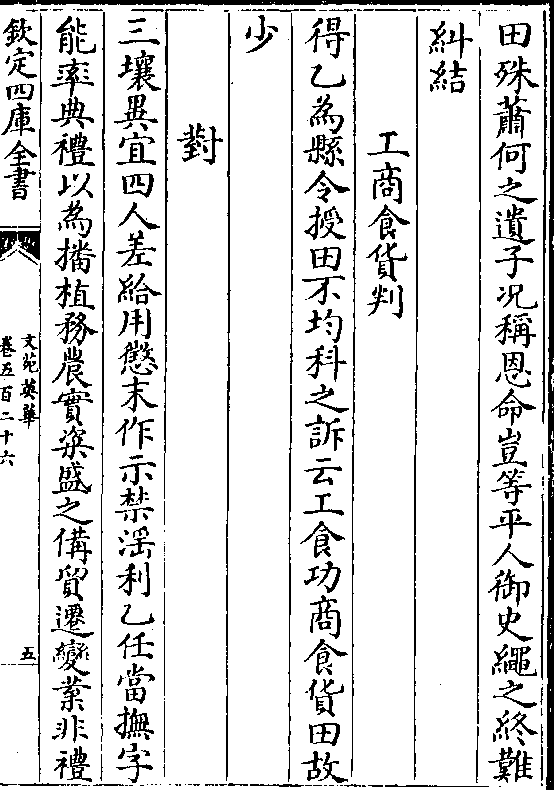 田殊蕭何之遺子况稱恩命豈等平人御史繩之終難
糾結
工商食貨判
得乙為縣令授田不均科之訴云工食功商食貨田故
少
對
三壤異宜四人差給用懲末作示禁滛利乙任當撫字
能率典禮以為播植務農實粢盛之備貿遷變業非禮
欽定四庫全書
文苑英華
卷五百二十六
五